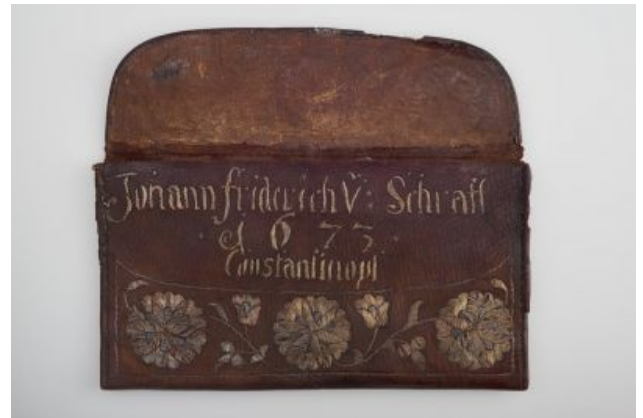 Johann friderich V: Schrall
1673
Constantinopl